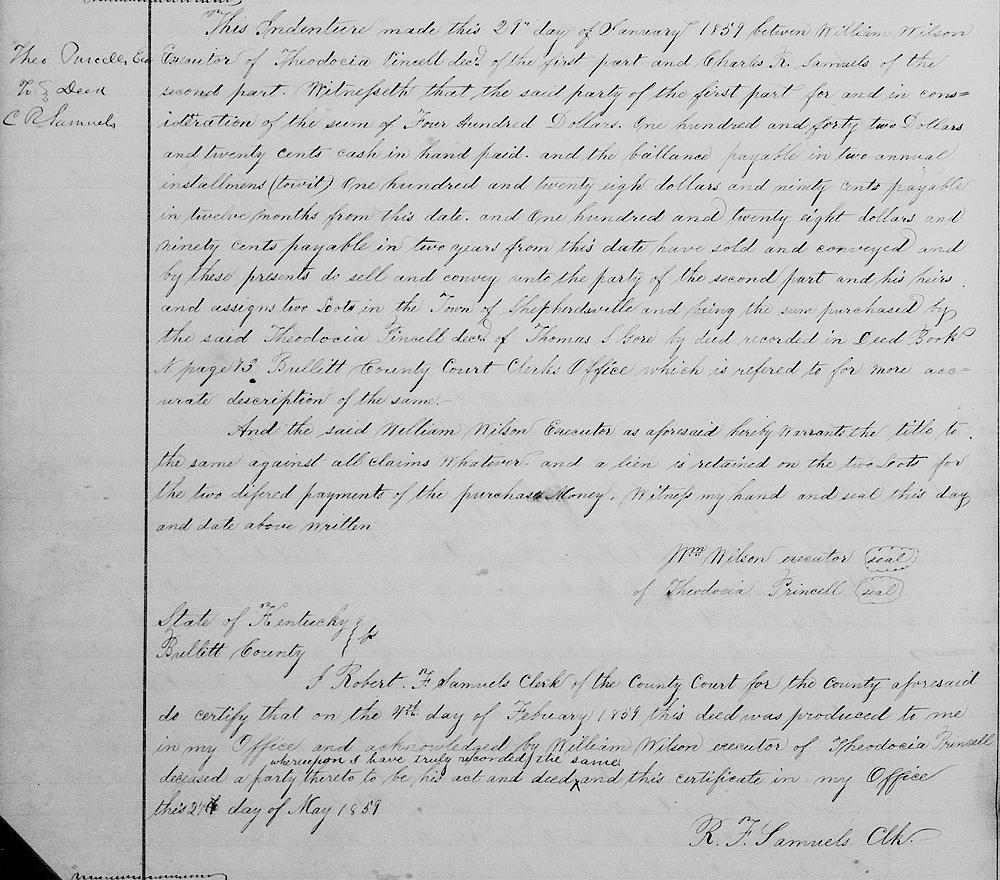 This Indenture made this 29" day of January 1859 betwen William Wilson
Theo Purcells Exo
Executor of Theodocia Pincell decd. of the first part and Charles R. Samuels of the
To } Deed
second part. Witnesseth that the said party of the first part for and in cons=
C R Samuels
ideration of the sum of Four Hundred Dollars. One hundred and forty two Dollars
and twenty cents cash in hand paid. and the ballance payable in two annual
installmens (towit) One hundred and twenty eigh dollars and ninety cents payable
in twelve months from this date. and One hundred and twenty eight dollars and
ninety cents payable in two years from this date, have sold and conveyed and
by these presents do sell and convey unto the party of the second part and his heirs
and assigns two Lots in the Town of Shepherdsville and being the sum purchased by
the said Theodocia Pincell decd. of Thomas S Gore by deed recorded in Deed Book
N page 73 Bullitt County Court Clerks Office which is refered to for more acc=
urate description of the same.
And the said William Wilson Executor as aforesaid hereby Warrants the title to
the same against all claims Whatever and a lien is retained on the two Lots for
the two difered payments of the purchase Money. Witness my hand and seal this day
and date above written
Wm Wilson executor (seal)
of Theodocia Princell (seal)
State of Kentucky }
Bullitt County }
I Robert. F Samuels Clerk of the County Court for the County aforesaid
do certify that on the 4th day of Febuary 1859 this deed was produced to me
in my Office and acknowledged by William Wilson executor of Theodocia Princell
whereupon I have truly recorded the same
deceased a party thereto to be his act and deed ^ and this certificate in my Office
this 27 day of May 1859
R. F. Samuels Clk.